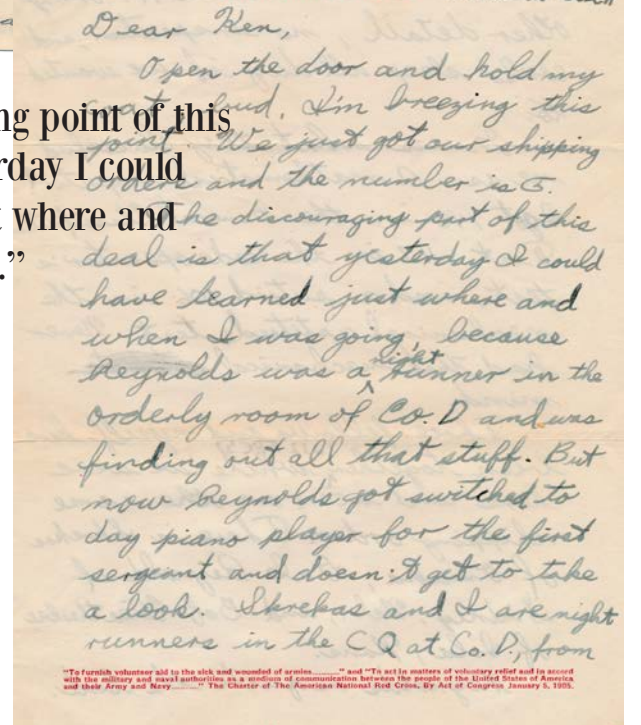 Dear Ken,
Open the door and hold my
loud, I'm breezing this
ng point of this
joint. We just got our shipping
rday I could
orders and the number is G.
where and
The discouraging part of this
.”
deal is that yesterday I could
have learned just where and
when I was going, because
Reynolds was a night runner in the
orderly room of Co. D and was
finding out all that stuff. But
now Reynolds got switched to
day piano player for the first
sergeant and doesn't get to take
a look. Skrekas and I are night
runners in the CQ at Co. D, from
"To furnish volunteer aid to the sick and wounded of armies..........." and "To act in matters of voluntary relief and in accord
with the military and naval authorities as a medium of communication between the people of the United States of America
and their Army and Navy.........." The Charter of The American National Red Cross. By Act of Congress January 5, 1905.